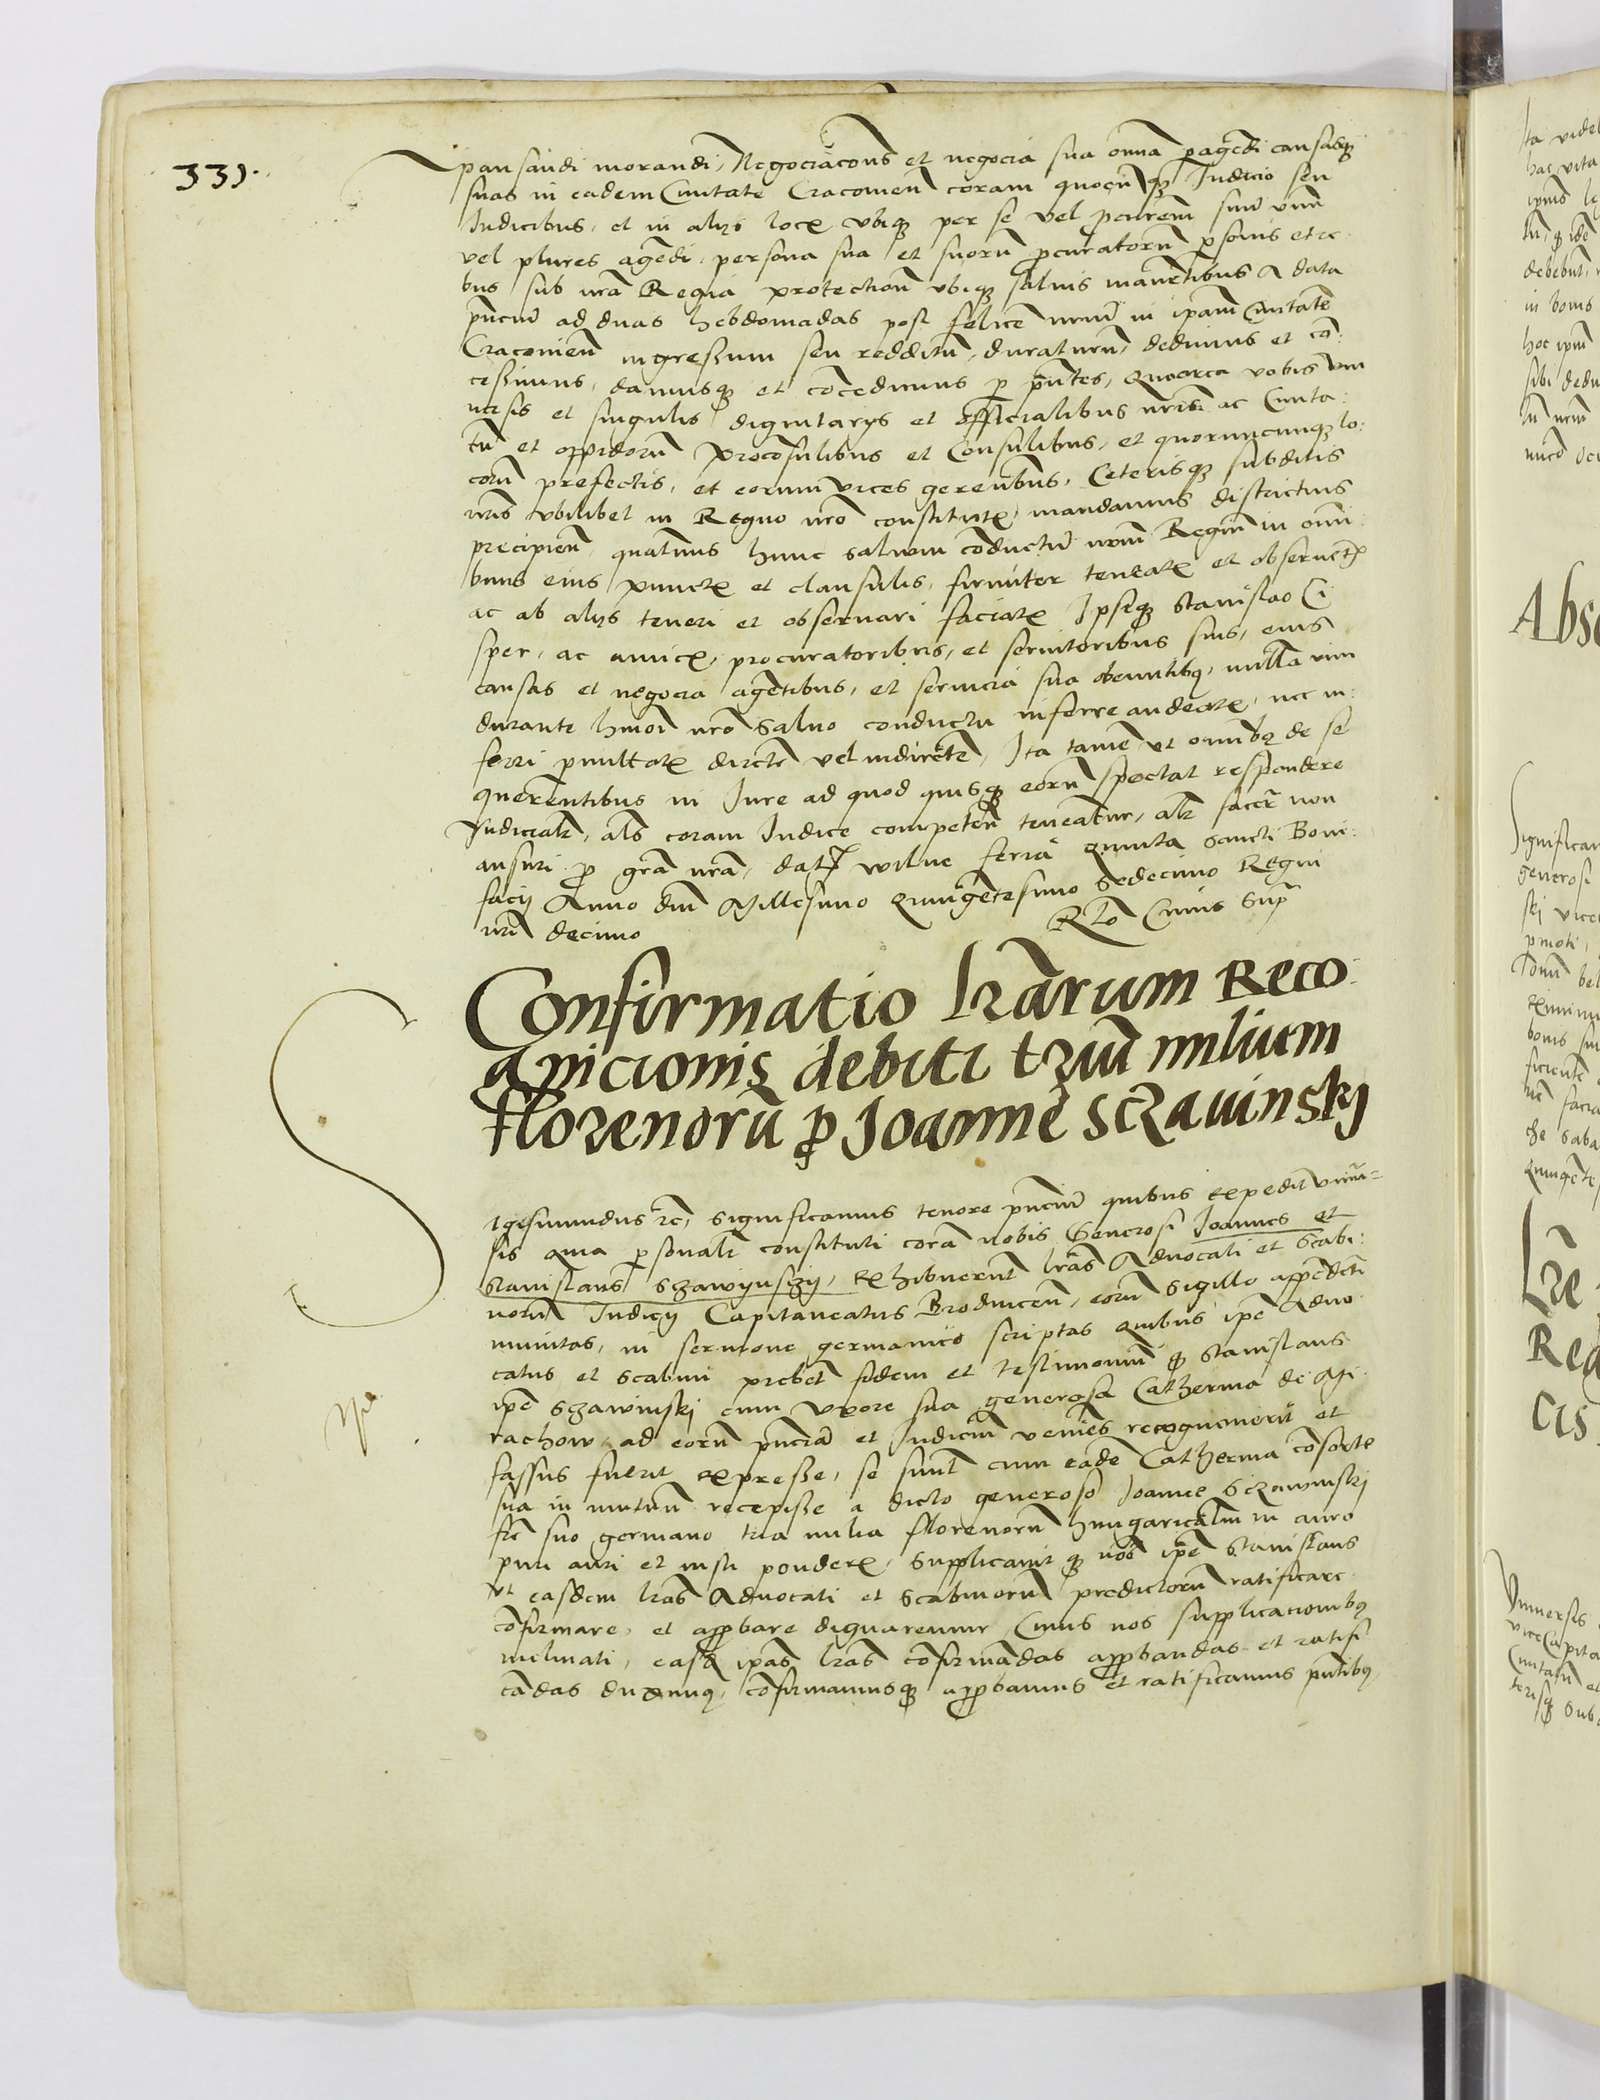 339.
pausandi morandi, Negociacōns et negocia sua oīna pagēdi causasq̃
suas in eadem Civitate Cracovień coram quocūq̃ Iudicio seu
Iudicibus, et in alijs locꝭ vbiq̃ per se vel pcurem̄ suū vnū
vel plures agēdi, persona sua et suorū pcuratorū psonis et re
bus sub nr̄a Regia protection̄ vbiq̃ saluis manētibus A data
pn̄ciū ad duas hebdomadas post felicē nr̄um in ipam̄ Civitatē
Cracovień ingressum seu redditū, duraturū, dedimus et con:
cessimus, damusq̃ et concedimus p pn̄tes, Quocirca vobis vni
uersis et singulis dignitarijs et officialibus nr̄is ac Civita:
tū et oppidorū Proconsulibus et Consulibus, et quorumcunq̃ lo:
corū prefectis, et eorum vices gerentibus, Ceterisq̃ subditis
nr̄is vbilibet in Regno nr̄o constitutꝭ, mandamus districtius
precipień, quatenus hunc saluum cōductū nr̄um Regiū in omi
bus eius punctꝭ et clausulis, firmiter teneatꝭ et obseruetꝭ
ac ab alijs teneri et obseruari faciatꝭ Ipsiq̃ Stanislao Ci
sper, ac amicꝭ, procuratoribus, et seruitoribus suis, eius
causas et negocia agētibus, et seruicia sua obeuntibꝰ, nulla vim
durante hmōi nr̄o Saluo conductu inferre audeatꝭ, nec in:
ferri pmittatꝭ directe vel indirecte, Ita tamē vt omibꝰ de se
querentibus in Iure ad quod quisq̃ eorū spectat respondere
Iudicialr̄, als coram Iudice competen̄ teneatur, alr̄ facēr non
ansuri p grā nr̄a, dat Wilne feria Quinta Sancti Boni:
facij Anno dn̄i Millesimo Quingētesimo Sedecimo Regni
nr̄i decimo
Rl̄o Cuius Supr̄
Confirmatio lrārum Reco
gnicionis debiti triū milium
florenorū p Joannē Sczawinskj
Sigismundus rc̄, Significamus tenore pn̄ciū quibus expedit vniuer=
sis Quia psonalr̄ constituti corā nobis Generosi Joannes et
Stanislaus Sczawynsczy, Exhibuerūt lrās Aduocati et Scabi:
norū Iudicij Capitaneatus Brodnicen̄, eorū Sigillo appēdeti
munitas, in sermone germanico scriptas quibus ipē Aduo
catus et Scabini prebēt fidem et testimoniū q̃ Stanislaus
ipē Sczawinskj cum Vxore sua generosa Catherina de Mi
rachow, ad eorū pn̄ciā et Iudiciū veniēs recognouerit et
fassus fuerit Expresse, se siml̄ cum eadē Catherina cōsorte
sua in mutuū recepisse a dicto generoso Joanne Sczawinskj
frē suo germano tria milia florenorū hungaricaliū in auro
puri auri et iusti ponderꝭ, Supplicauit q̃ nob̄ ipē Stanislaus
vt easdem lrās Aduocati et Scabinorū predictorū ratificare
cōfirmare, et approbare dignaremur, Cuius nos supplicationibꝰ
inclinati, easdē ipās lrās cōfirmādas approbandas et ratifi
cādas duximꝰ, cōfirmamusq̃ approbamus et ratificamus pn̄tibꝰ
Abso
Significam
generosi
Lrē
Reg
cis
Vniuersis
viceCapita
Civitatū et